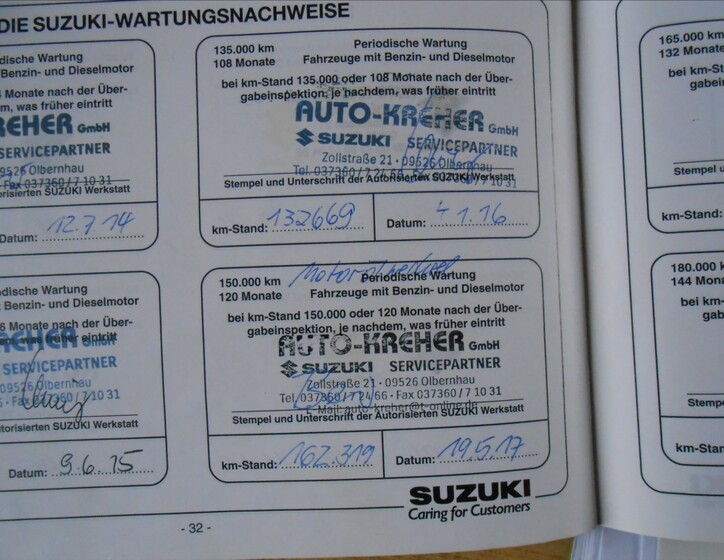 DIE SUZUKI-WARTUNGSNACHWEISE
odische Wartung
Benzin- und Dieselmotor
Monate nach der Über-
m, was früher eintritt
REHER GmbH
SERVICEPARTNER
09526 Olbernhau
Fax 037360/7 10 31
erisierten SUZUKI Werkstatt
Datum: 12.7.14
135.000 km
108 Monate
Periodische Wartung
Fahrzeuge mit Benzin- und Dieselmotor
bei km-Stand 135.000 oder 108 Monate nach der Über-
gabeinspektion, je nachdem, was früher eintritt
AUTO-KREHER GmbH
SUZUKI SERVICEPARTNER
Zollstraße 21 · 09526 Olbernhau
Tel. 037360/7 24 66 · Fax 037360/7 10 31
Stempel und Unterschrift der Autorisierten SUZUKI Werkstatt
km-Stand: 132669 Datum: 4.1.16
165.000 km
132 Monate
bei km-St
gabei
Stempel u
km-Stand:
odische Wartung
Benzin- und Dieselmotor
6 Monate nach der Über-
em, was früher eintritt
REHER GmbH
SERVICEPARTNER
09526 Olbernhau
Fax 037360/7 10 31
utorisierten SUZUKI Werkstatt
Datum: 9.6.15
Motorölwechsel
150.000 km
120 Monate
Periodische Wartung
Fahrzeuge mit Benzin- und Dieselmotor
bei km-Stand 150.000 oder 120 Monate nach der Über-
gabeinspektion, je nachdem, was früher eintritt
AUTO-KREHER GmbH
SUZUKI SERVICEPARTNER
Zollstraße 21 · 09526 Olbernhau
Tel. 037360/7 24 66 · Fax 037360/7 10 31
Mail: auto-kreher@t-online.de
Stempel und Unterschrift der Autorisierten SUZUKI Werkstatt
km-Stand: 162.319 Datum: 19.5.17
180.000
144 Mona
bei km-
gab
Stempe
km-Stand
SUZUKI
Caring for Customers
- 32 -